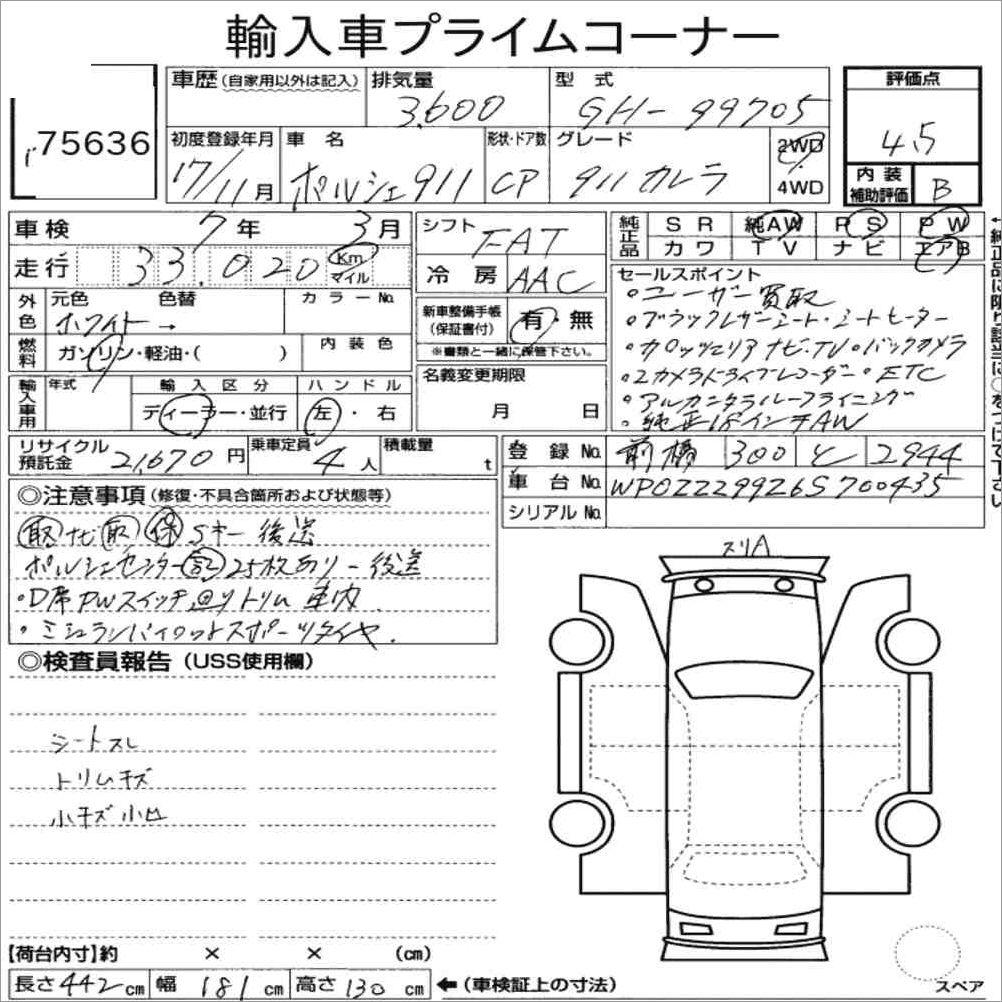 輸入車プライムコーナー
75636
車歴 (自家用以外は記入) 排気量 3,600 型式 GH-99705 評価点 4.5
初度登録年月 17/11月 車名 ポルシェ911 形状・ドア数 CP グレード 911カレラ 2WD 4WD 内装補助評価 B
車検 7年 3月 シフト FAT 純正品 SR 純AW PS PW
カワ TV ナビ エアB
走行 33,020 Km マイル 冷房 AAC
外色 元色 ホワイト → 色替 カラーNo. 新車整備手帳 (保証書付) 有・無
※書類と一緒に保管下さい。
燃料 ガソリン・軽油・( ) 内装色
輸入車用 年式 輸入区分 ディーラー・並行 ハンドル 左・右 名義変更期限 月 日
セールスポイント
・ユーザー買取
・ブラックレザーシート・シートヒーター
・カロッツェリアナビ・TV・バックカメラ
・2カメラドライブレコーダー・ETC
・アルカンタラルーフライニング
・純正18インチAW
←純正品に限り該当に○をつけて下さい
リサイクル預託金 21,670円 乗車定員 4人 積載量 t
登録No. 前橋 300 と 2944
車台No. WP0ZZZ99Z6S700435
シリアルNo.
◎注意事項 (修復・不具合箇所および状態等)
取ナビ取保Sキー後送
ポルシェセンター記25枚あり-後送
・D席PWスイッチ廻りトリム車内
・ミシュランパイロットスポーツタイヤ.
◎検査員報告 (USS使用欄)
シートスレ
トリムキズ
小キズ小凹
スリA
スペア
【荷台内寸】約 × × (cm)
長さ442cm 幅181cm 高さ130cm ←(車検証上の寸法)